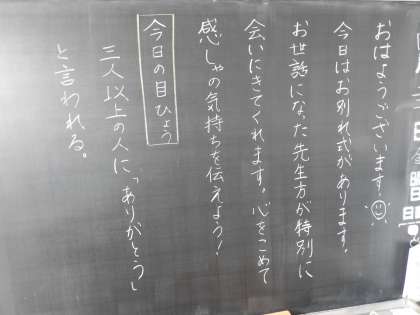 おはようございます。
今日はお別れ式があります。
お世話になった先生方が特別に
会いにきてくれます。心をこめて
感しゃの気持ちを伝えよう！
今日の目ひょう
三人以上の人に「ありがとう」
と言われる。